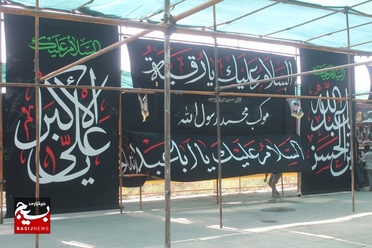 السلام علیک
علی الاکبر
السلام علیک یا رقیة
موکب محمد رسول الله
السلام علیک یا اباعبدالله
السلام علیک
عبدالله
الحسن
خبرگزاری
بسیج
BASIJNEWS